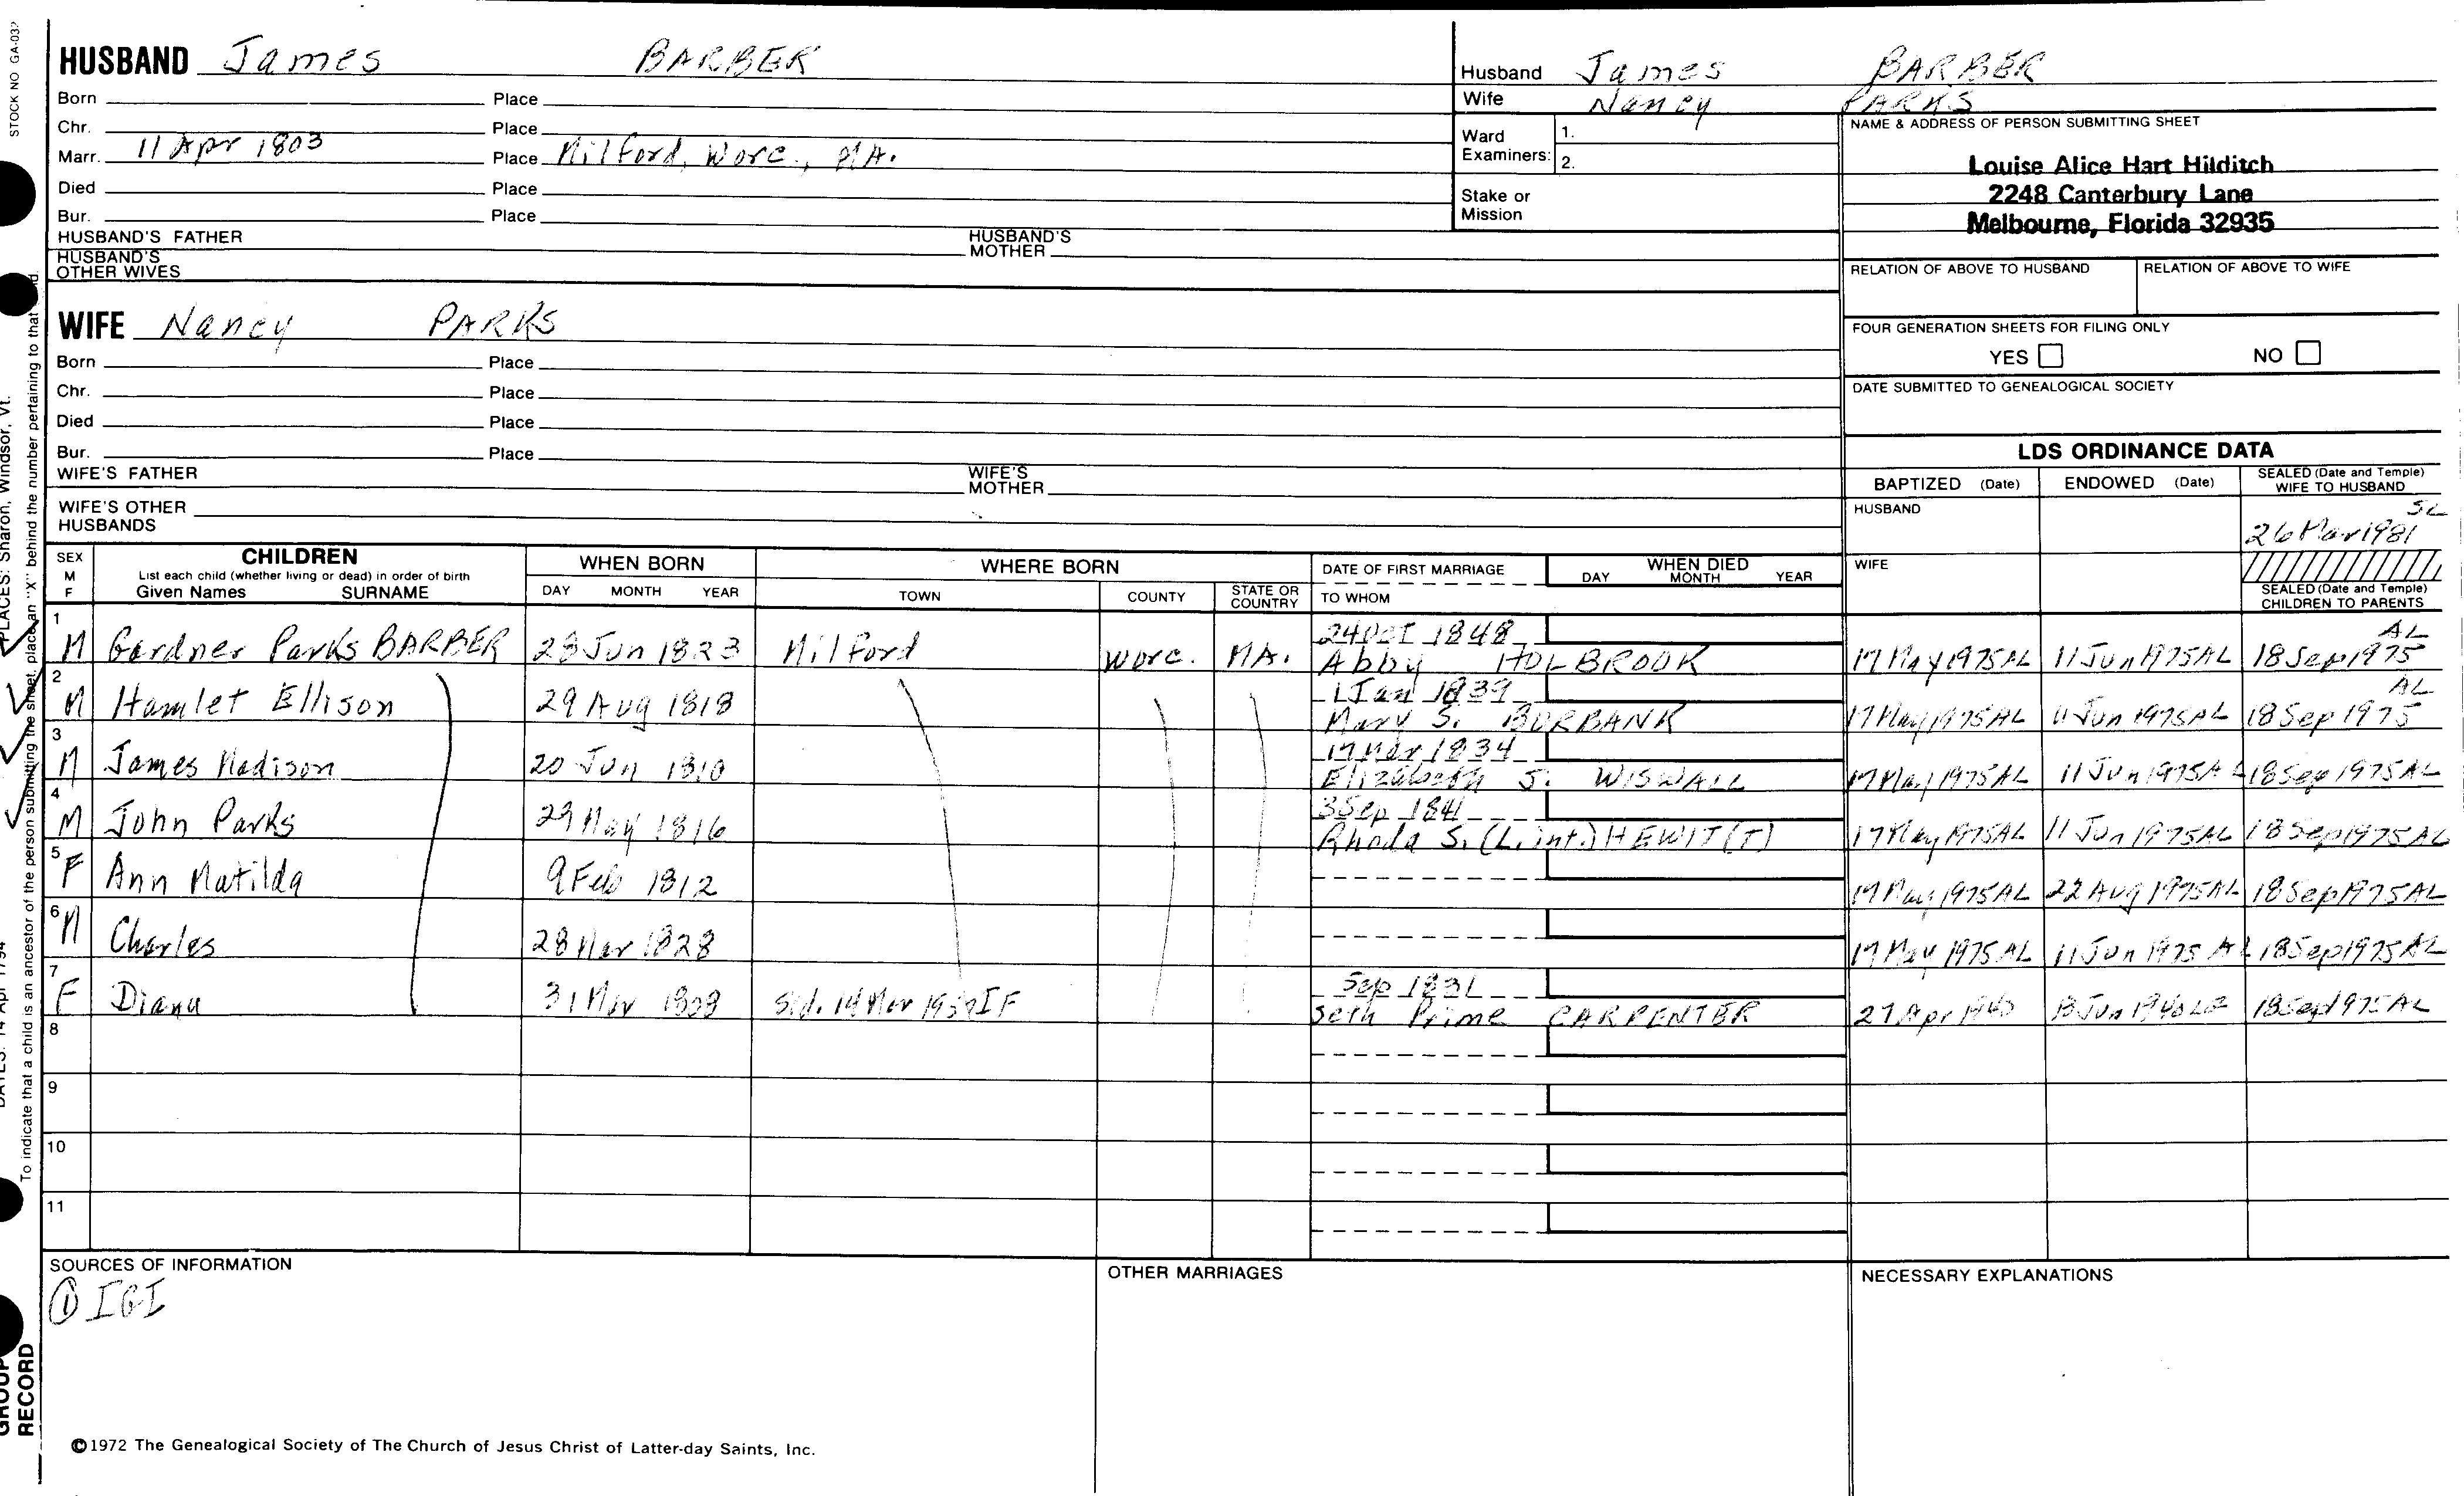 STOCK NO GA-03
HUSBAND James BARBER
Born Place
Chr. Place
Marr. 11 Apr 1803 Place Milford, Worc., MA.
Died Place
Bur. Place
HUSBAND'S FATHER HUSBAND'S MOTHER
HUSBAND'S OTHER WIVES
WIFE Nancy PARKS
Born Place
Chr. Place
Died Place
Bur. Place
WIFE'S FATHER WIFE'S MOTHER
WIFE'S OTHER HUSBANDS
Husband James BARBER
Wife Nancy PARKS
Ward Examiners: 1.
2.
Stake or Mission
NAME & ADDRESS OF PERSON SUBMITTING SHEET
Louise Alice Hart Hilditch
2248 Canterbury Lane
Melbourne, Florida 32935
RELATION OF ABOVE TO HUSBAND RELATION OF ABOVE TO WIFE
FOUR GENERATION SHEETS FOR FILING ONLY
YES NO
DATE SUBMITTED TO GENEALOGICAL SOCIETY
LDS ORDINANCE DATA
BAPTIZED (Date) ENDOWED (Date) SEALED (Date and Temple) WIFE TO HUSBAND
HUSBAND SL
26 Mar 1981
WIFE
SEALED (Date and Temple) CHILDREN TO PARENTS
SEX M F CHILDREN WHEN BORN WHERE BORN DATE OF FIRST MARRIAGE WHEN DIED
List each child (whether living or dead) in order of birth
Given Names SURNAME DAY MONTH YEAR TOWN COUNTY STATE OR COUNTRY TO WHOM DAY MONTH YEAR
1 24 Oct 1848 AL
M Gardner Parks BARBER 28 Jun 1823 Milford Worc. MA. Abby HOLBROOK 17 May 1975 AL 11 Jun 1975 AL 18 Sep 1975
2 1 Jan 1839 AL
M Hamlet Ellison 29 Aug 1818 Mary S. BURBANK 17 May 1975 AL 11 Jun 1975 AL 18 Sep 1975
3 1834
M James Madison 20 Jun 1810 Elizabeth J. WISWALL 17 May 1975 AL 11 Jun 1975 AL 18 Sep 1975 AL
4 3 Sep 1841
M John Parks 29 May 1816 Rhoda S. (L. int.) HEWIT(T) 17 May 1975 AL 11 Jun 1975 AL 18 Sep 1975 AL
5
F Ann Matilda 9 Feb 1812 17 May 1975 AL 22 Aug 1975 AL 18 Sep 1975 AL
6
M Charles 28 Mar 1828 17 May 1975 AL 11 Jun 1975 AL 18 Sep 1975 AL
7 Sep 1831
F Diana 31 Seth Prime CARPENTER 27 Apr 1940 18 Sep 1975 AL
8
9
10
11
SOURCES OF INFORMATION OTHER MARRIAGES NECESSARY EXPLANATIONS
① IGI
©1972 The Genealogical Society of The Church of Jesus Christ of Latter-day Saints, Inc.
PLACES: Sharon, Windsor, Vt.
To indicate that a child is an ancestor of the person submitting the sheet, place an "X" behind the number pertaining to that
DATES: 14 Apr 1794
GROUP
RECORD